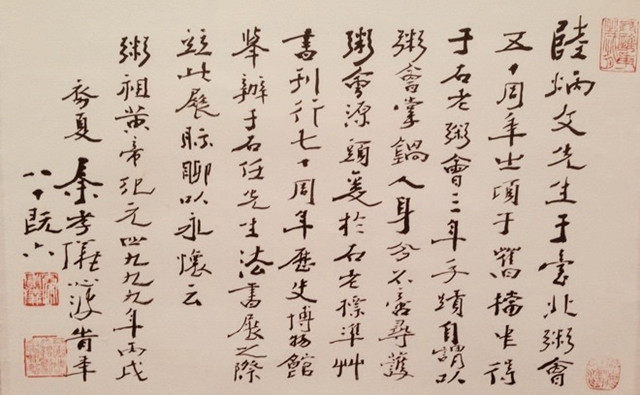 陸炳文先生于臺北粥會
五十周年之頃于舊檔坐得
于右老粥會三年手蹟自謂以
粥會掌鍋人身兮不啻尋獲
粥會源頭爰於右老標準艸
書刊行七十周年歷史博物館
舉辦于右任先生法書展之際
跋此展賑聊以永懷云
粥祖黃帝紀元四九九九年丙戌
孟夏秦孝儀心波時年
八十又六